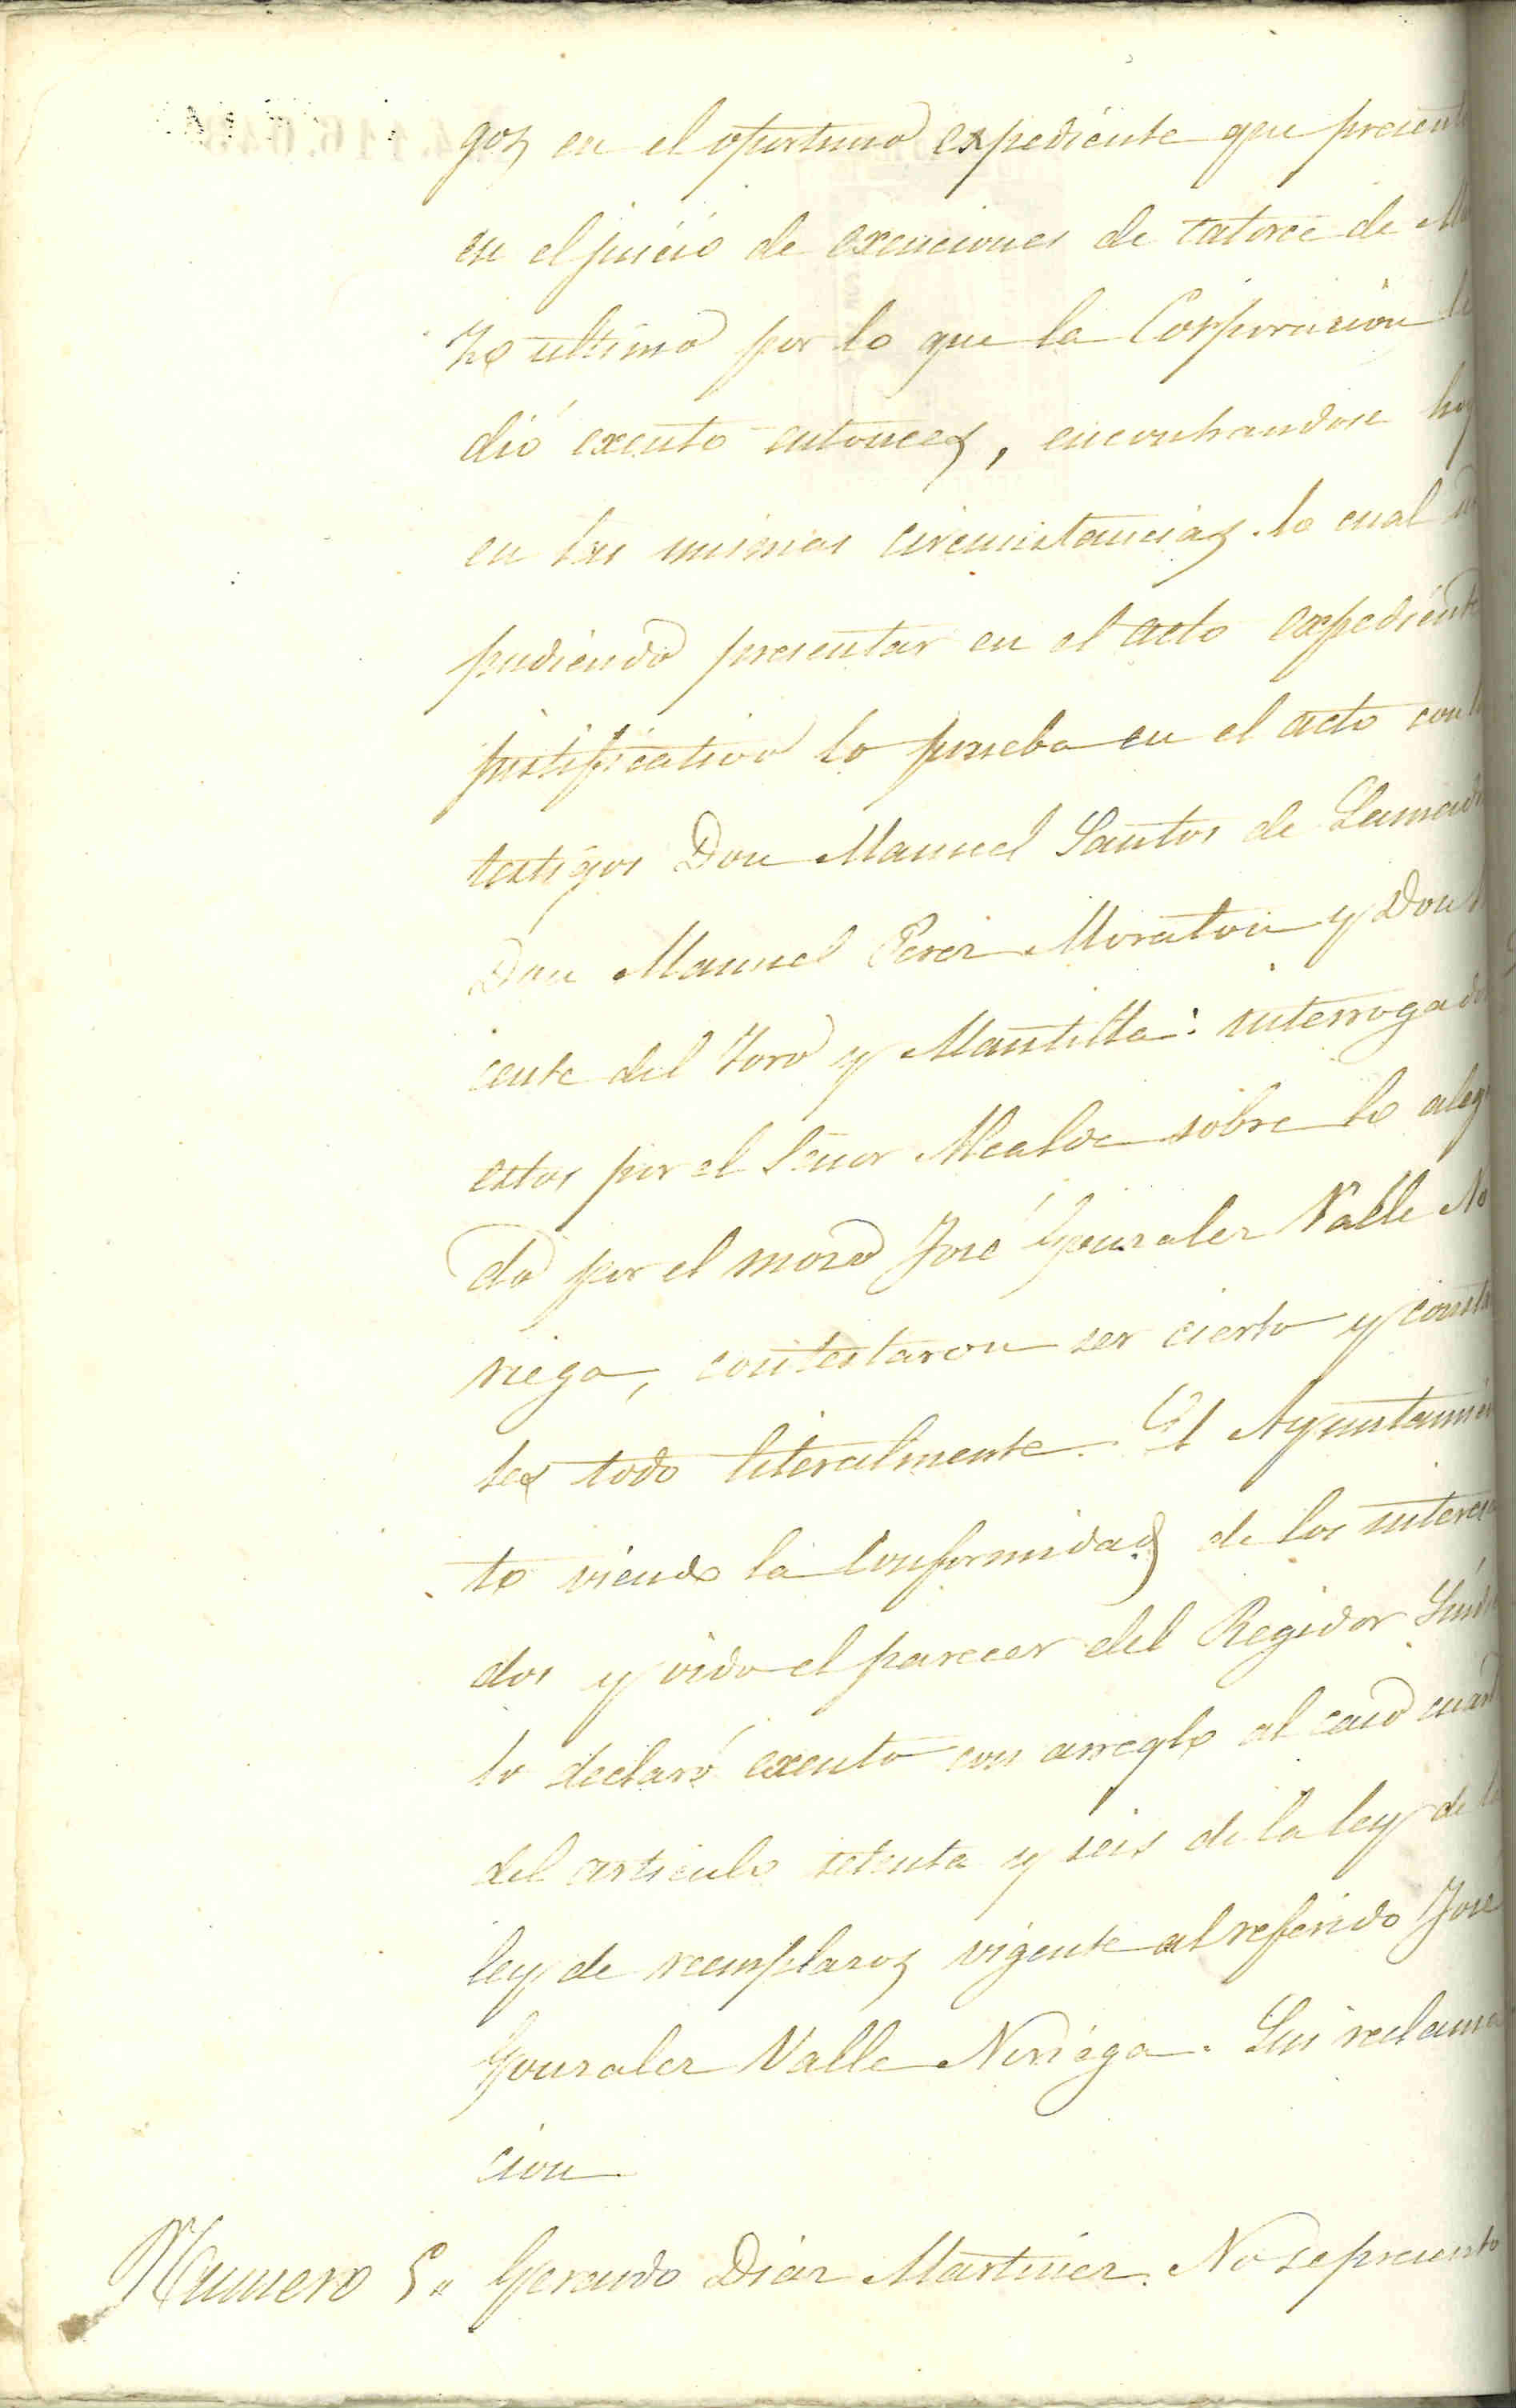 gos en el oportuno expediente que present
en el juicio de exenciones de catorce de M
zo ultimo por lo que la Corporacion
dió exento entonces, encontrandose hoy
en las mismas circunstancias. lo cual no
pudiendo presentar en el acto expediente
justificativo lo prueba en el acto con
testigos Don Manuel Santos de Lamad
Don Manuel Perez Moraton y Don
cente del Toro y Mantilla: interrogados
estos por el Señor Alcalde sobre lo alega
do por el mozo José Gonzalez Valle No
riega, contestaron ser cierto y constar
les todo literalmente. El Ayuntamien
to viendo la conformidad de los interesa
dos y oido el parecer del Regidor Síndico
lo declaró exento con arreglo al caso cuarto
del articulo setenta y seis de la ley de la
ley de reemplazos vigente al referido José
Gonzalez Valle Noriega. Sin reclama
cion
Numero 5" Gerardo Diaz Martinez. No se presentó